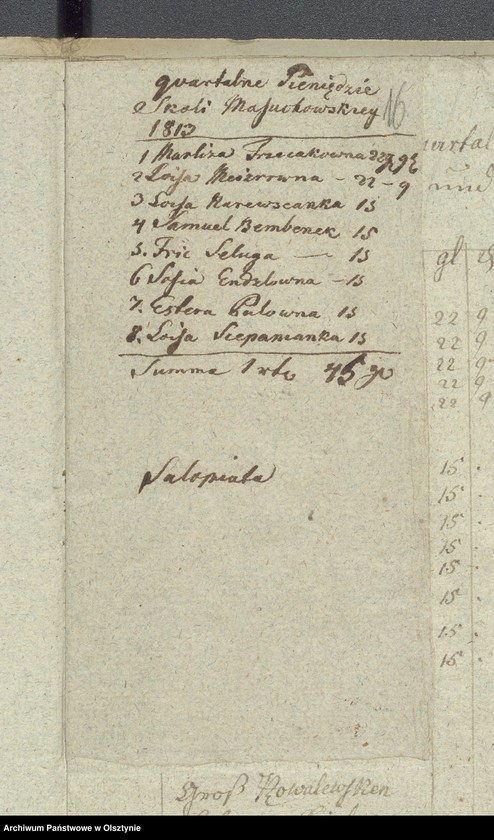 quartalne Pieniędzie
z Skoli Masuchowskiey
16
1813
1 Marliza Trzecakowna 22 g 9 ₰
2 Loisa Meizrowna – 22 – 9
3 Loisa Karewscanka 15
4 Samuel Bembenek 15
5. Fric Seluga — 15
6 Sofia Endelowna – 15
7. Estera Palowna 15
8. Loisa Sczepanianka 15
Summa 1 rtl 45 gr
Salopiata
gl
22 9
22 9
22 9
22 9
22 9
15 .
15 .
15 .
15 .
15 .
15 .
15 .
15 .
Groß Kowalewsken
Archiwum Państwowe w Olsztynie